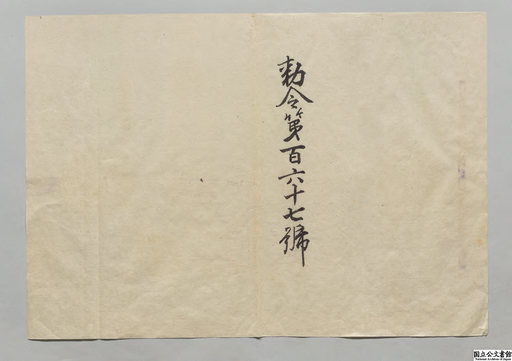 勅令第百六十七號
国立公文書館
National Archives of Japan